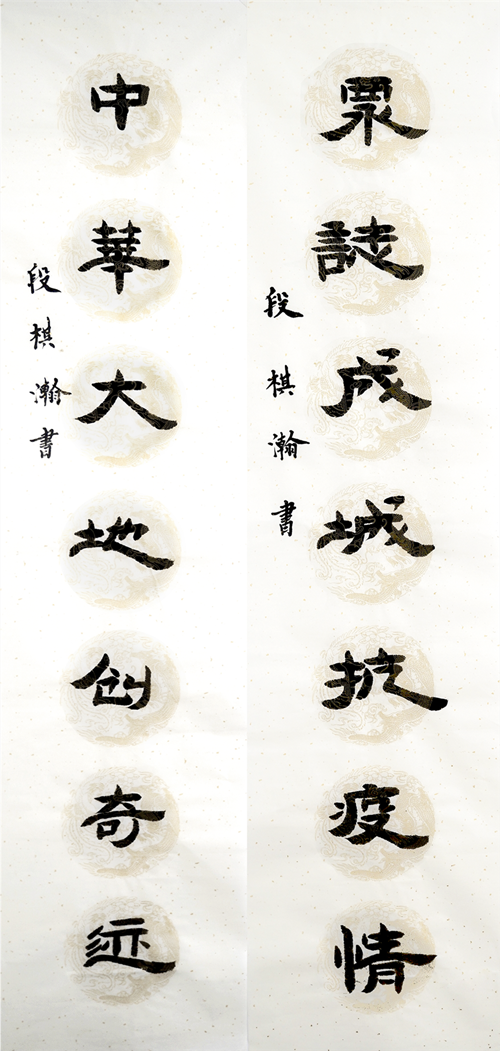 眾誌成城抗疫情
段棋瀚書
中華大地创奇迹
段棋瀚書